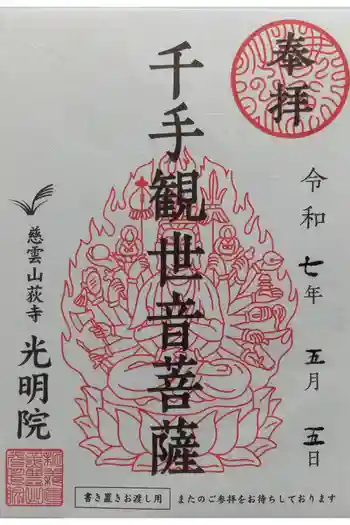 奉拝
令和七年 五月 五日
千手観世音菩薩
慈雲山荻寺
光明院
書き置きお渡し用
またのご参拝をお待ちしております